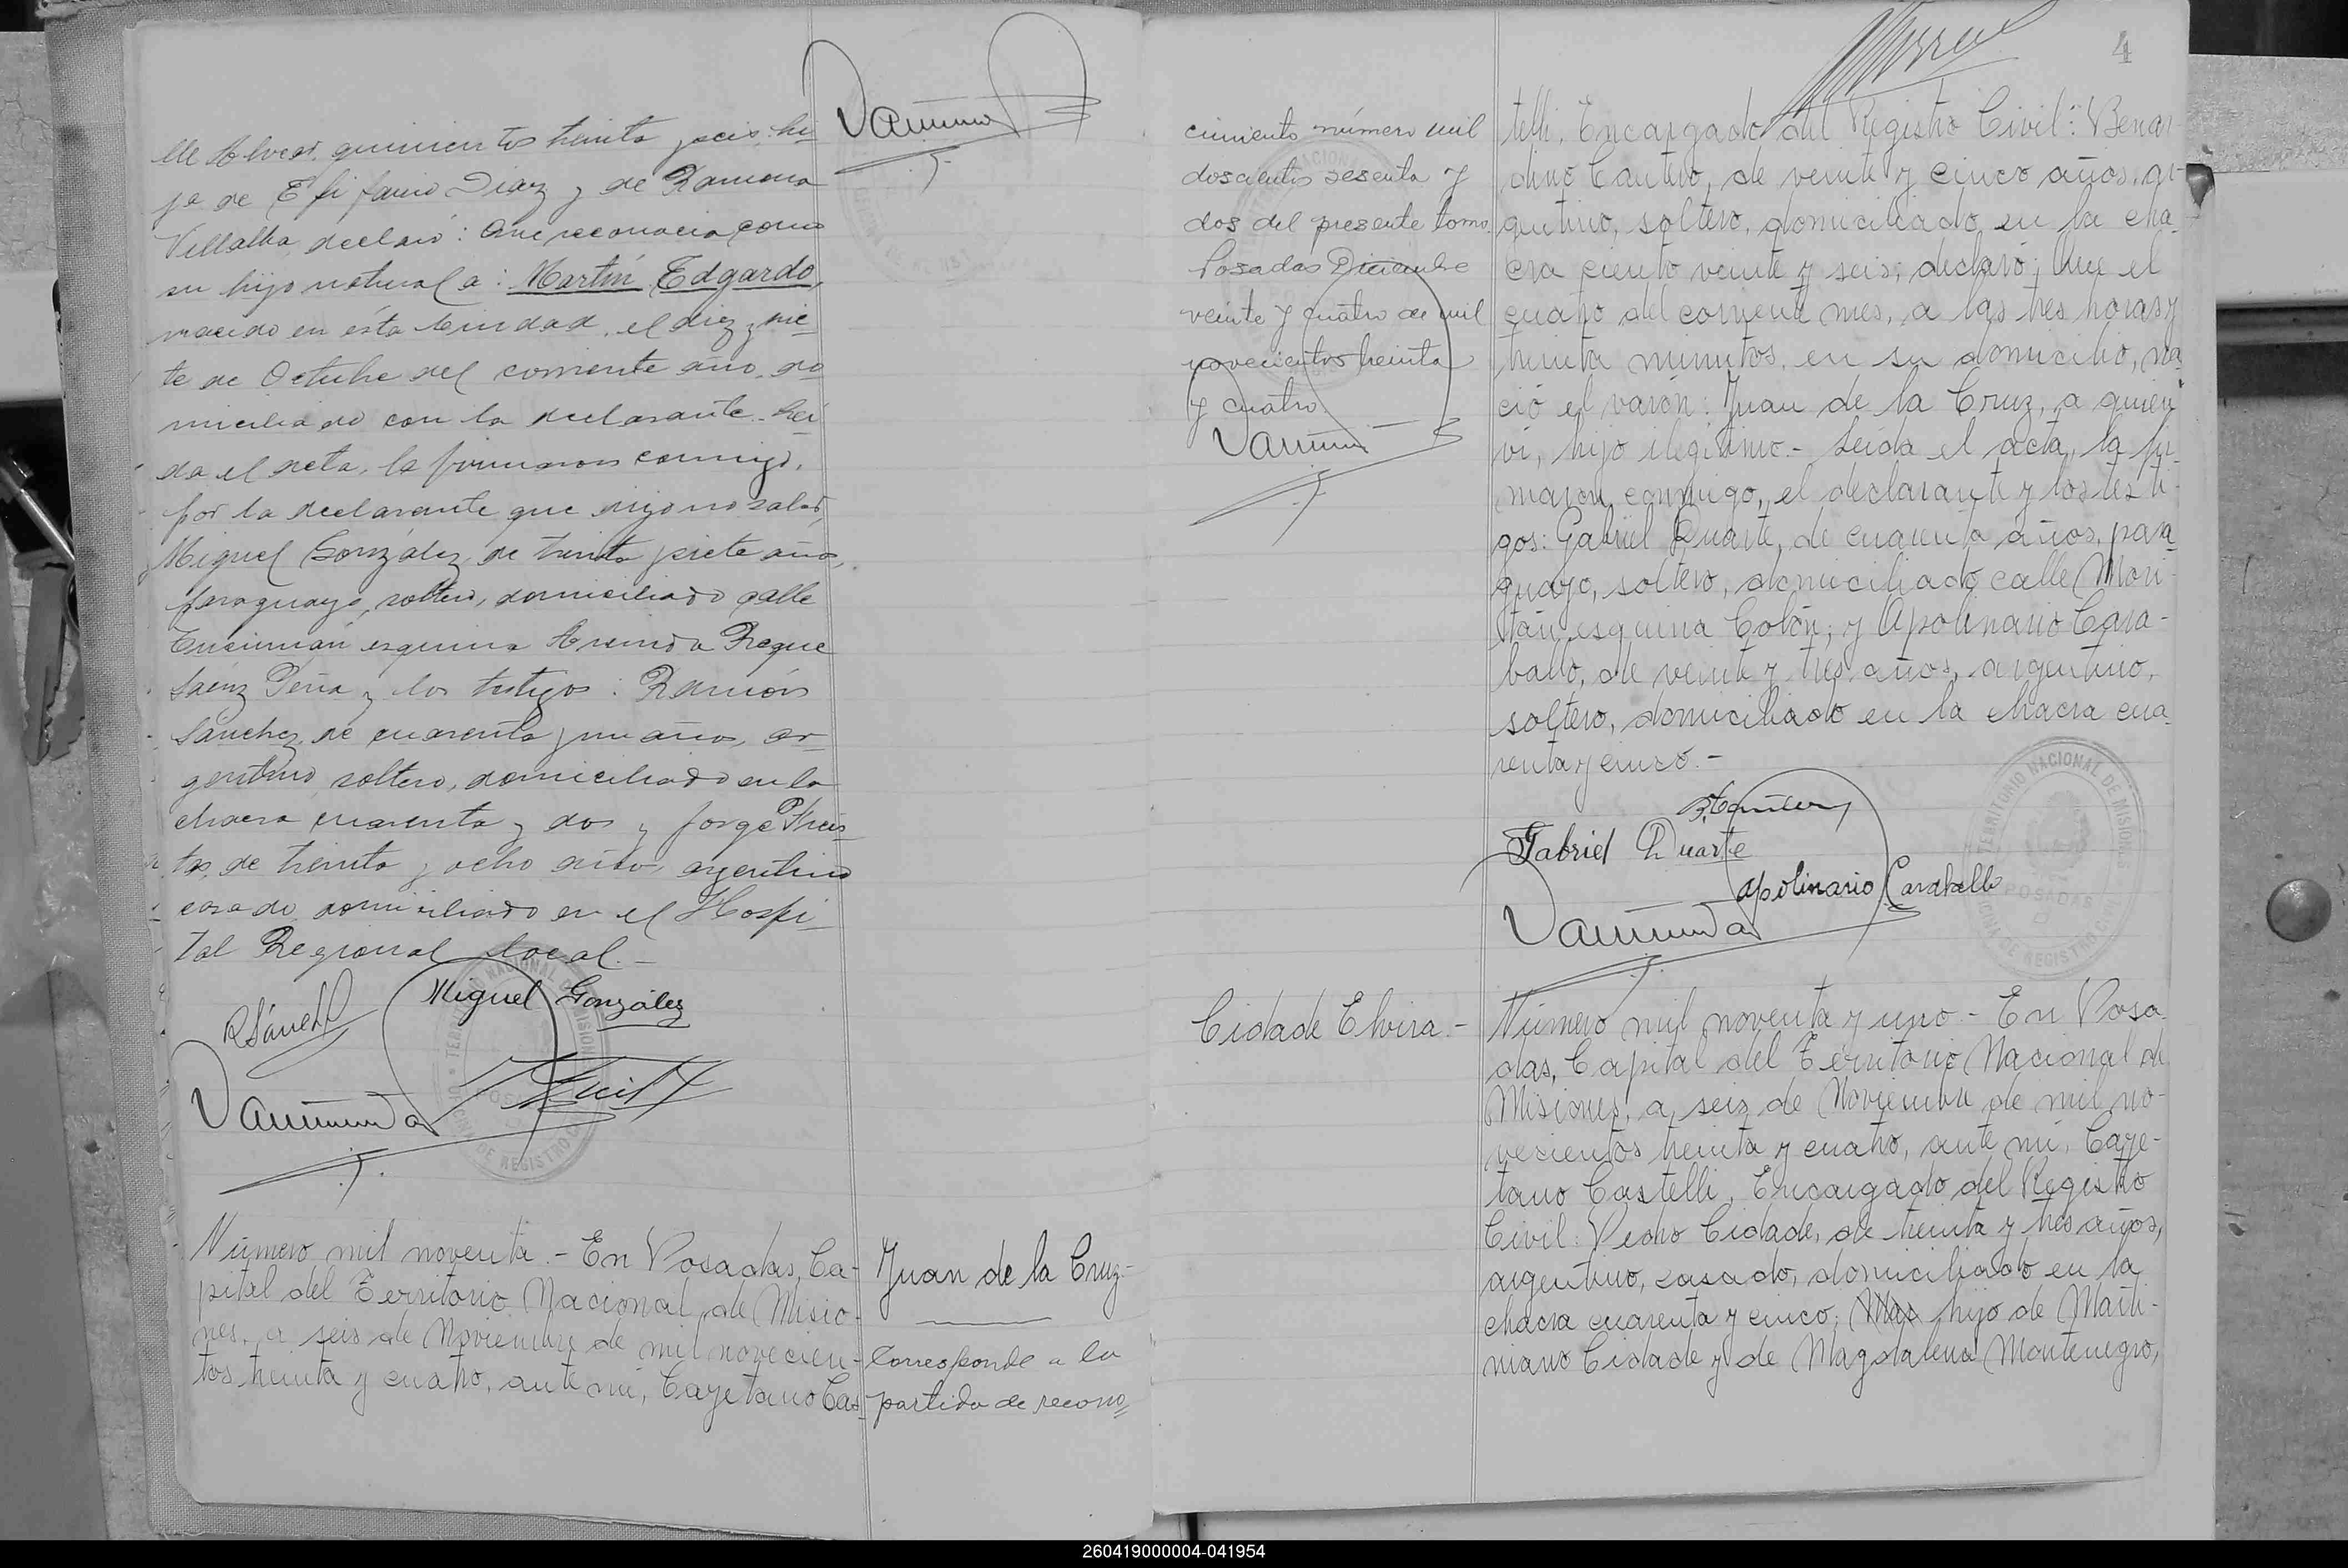 lle Alvear quinientos treinta y seis, hi
ja de Epifanio Diaz y de Ramona
Villalba, declaró: Que reconocia como
su hijo natural a: Martín Edgardo,
nacido en ésta Ciudad, el diez y sie
te de Octubre del corriente año, do
miciliado con la declarante. Leí
da el acta, la firmaron conmigo,
por la declarante que dijo no saber,
Miguel González, de treinta y siete años,
paraguayo, soltero, domiciliado calle
Tucumán esquina Avenida Roque
Sáenz Peña y los testigos: Ramón
Sánchez, de cuarenta y un años, ar
gentino, soltero, domiciliado en la
chacra cuarenta y dos y Jorge
tos, de treinta y ocho años, argentino
casado, domiciliado en el Hospi
tal Regional local.-
RSánchez
Miguel González
Número mil noventa.- En Posadas, Ca-
pital del Territorio Nacional de Misio-
nes, a seis de Noviembre de mil novecien-
tos treinta y cuatro, ante mí, Cayetano Cas-
Juan de la Cruz-
Corresponde a la
partida de recono=
4
cimiento número mil
doscientos sesenta y
dos del presente tomo.
Posadas Diciembre
veinte y cuatro de mil
novecientos treinta
y cuatro.
telli, Encargado del Registro Civil: Benar-
dino Cantero, de veinte y cinco años, ar-
gentino, soltero, domiciliado en la cha-
cra ciento veinte y seis; declaró; Que el
cuatro del corriente mes, a las tres horas y
treinta minutos, en su domicilio, na
ció el varón: Juan de la Cruz, a quien
ví, hijo ilegítimo.- Leída el acta, la fir
maron conmigo, el declarante y los testi-
gos: Gabriel Duarte, de cuarenta años, para
guayo, soltero, domiciliado calle
esquina Colón; y Apolinario Cara-
ballo, de veinte y tres años, argentino,
soltero, domiciliado en la chacra cua
renta y cinco.-
Gabriel Duarte
Apolinario Caraballo
TERRITORIO NACIONAL DE MISIONES
POSADAS
Cidade Elvira.-
Número mil noventa y uno.- En Posa-
das, Capital del Territorio Nacional de
Misiones, a seis de Noviembre de mil no-
vecientos treinta y cuatro, ante mí, Caye-
tano Castelli, Encargado del Registro
Civil: Pedro Cidade, de treinta y tres años,
argentino, casado, domiciliado en la
chacra cuarenta y cinco; hijo de Marti-
niano Cidade y de Magdalena Montenegro,
260419000004-041954